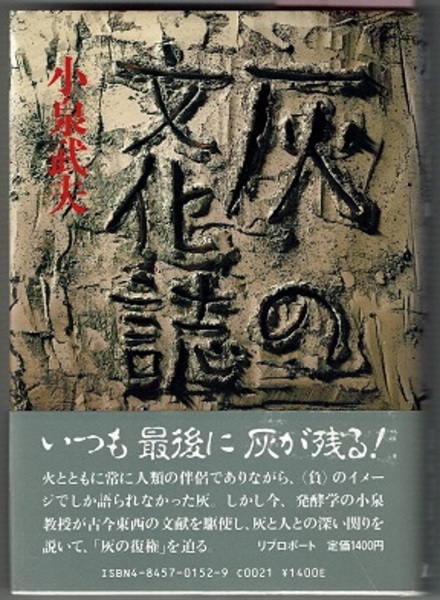 灰の
文化誌
小泉武夫
いつも最後に灰が残る!
火とともに常に人類の伴侶でありながら、〈負〉のイメー
ジでしか語られなかった灰。しかし今、発酵学の小泉
教授が古今東西の文献を駆使し、灰と人との深い関りを
説いて、「灰の復権」を迫る。 リブロポート 定価1400円
ISBN4-8457-0152-9 C0021 ¥1400E